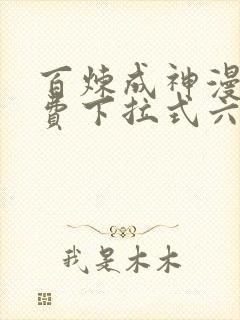 百炼成神漫
费下拉式六
我是木木